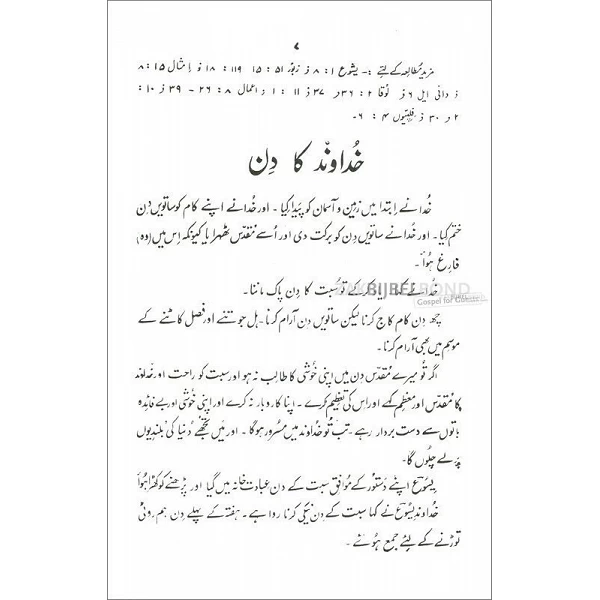 ۷
مزید مطالعہ کے لئے :۔ یشوع ۱ : ۸ ز زبور ۵۱ : ۱۵ ۱۱۹ : ۱۸ ز امثال ۱۵ : ۸
ز دانی ایل ۶ ز لُوقا ۲ : ۳۶ و ۳۷ ز ۱۱ : ۱ ز اعمال ۸ : ۲۶ - ۳۹ ز ۱۰ :
۲ و ۳۰ ز فلپیوں ۴ : ۶۔
خُداوند کا دِن
خُدا نے اِبتدا میں زمین و آسمان کو پَیدا کِیا ۔ اور خُدا نے اپنے کام کو ساتویں دِن
ختم کیا ۔ اور خُدا نے ساتویں دِن کو برکت دی اور اُسے مُقدّس ٹھہرایا کیونکہ اِس میں (وہ)
فارغ ہُوأ ۔
خُدا نے کہا یاد کر کے تُو سبت کا دِن پاک ماننا ۔
BIJBELBOND
Gospel for Guests
چھ دِن کام کاج کرنا لیکن ساتویں دِن آرام کرنا ۔ ہل جوتنے اور فصل کاٹنے کے
موسم میں بھی آرام کرنا ۔
اگر تُو میرے مُقدّس دِن میں اپنی خُوشی کا طالب نہ ہو اور سبت کو راحت اور خُداوند
کا مُقدّس اور معظم کہے اور اس کی تعظیم کرے ۔ اپنا کاروبار نہ کرے اور اپنی خُوشی اور بے فائدہ
باتوں سے دست بردار رہے ۔ تب تُو خُداوند میں مسرُور ہو گا ۔ اور میں تُجھے دُنیا کی بلندیوں
پر لے چلُوں گا ۔
یسُوع اپنے دستُور کے مُوافق سبت کے دِن عبادت خانہ میں گیا اور پڑھنے کو کھڑا ہُوأ
خُداوند یسُوع نے کہا سبت کے دِن نیکی کرنا روا ہے ۔ ہفتے کے پہلے دِن ہم روٹی
توڑنے کے لیٔے جمع ہوئے ۔